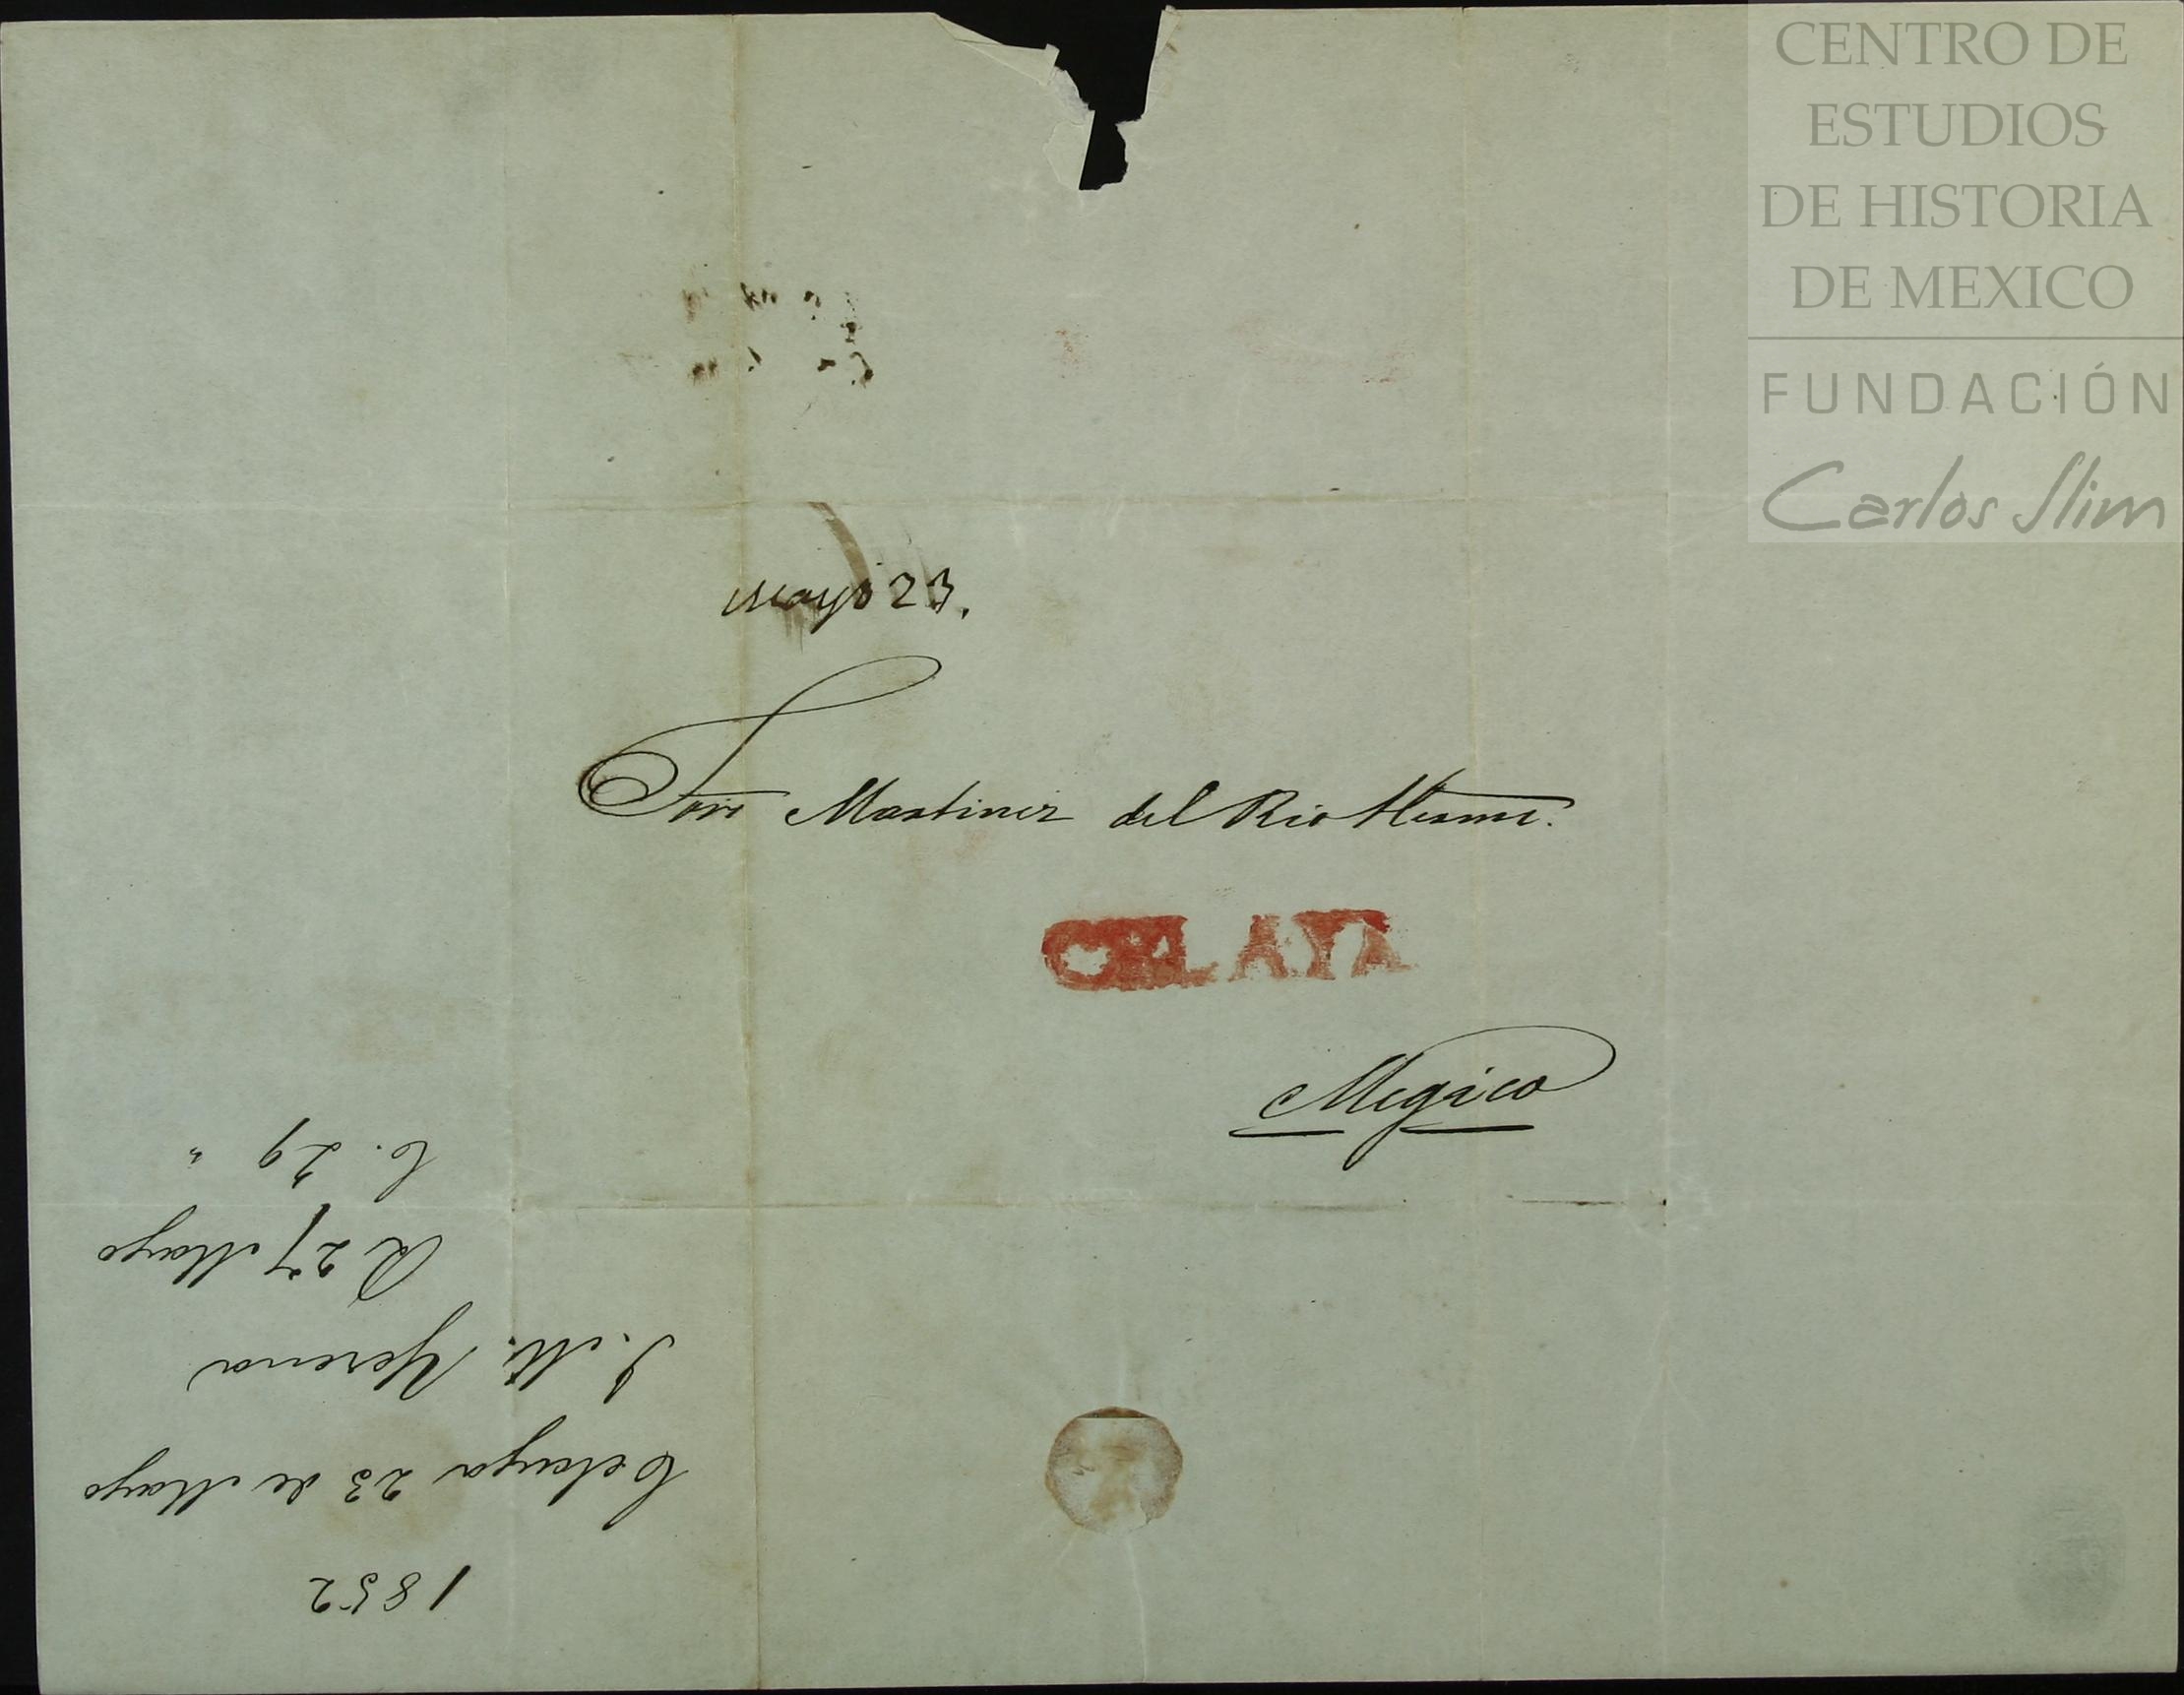 CENTRO DE
ESTUDIOS
DE HISTORIA
DE MEXICO
FUNDACIÓN
Carlos Slim
Mayo 23.
Sors Martinez del Rio Herms.
CELAYA
Megico
1852
Celaya 23 de Mayo
J. M. Yerena
R 27 Mayo
C. 29 "